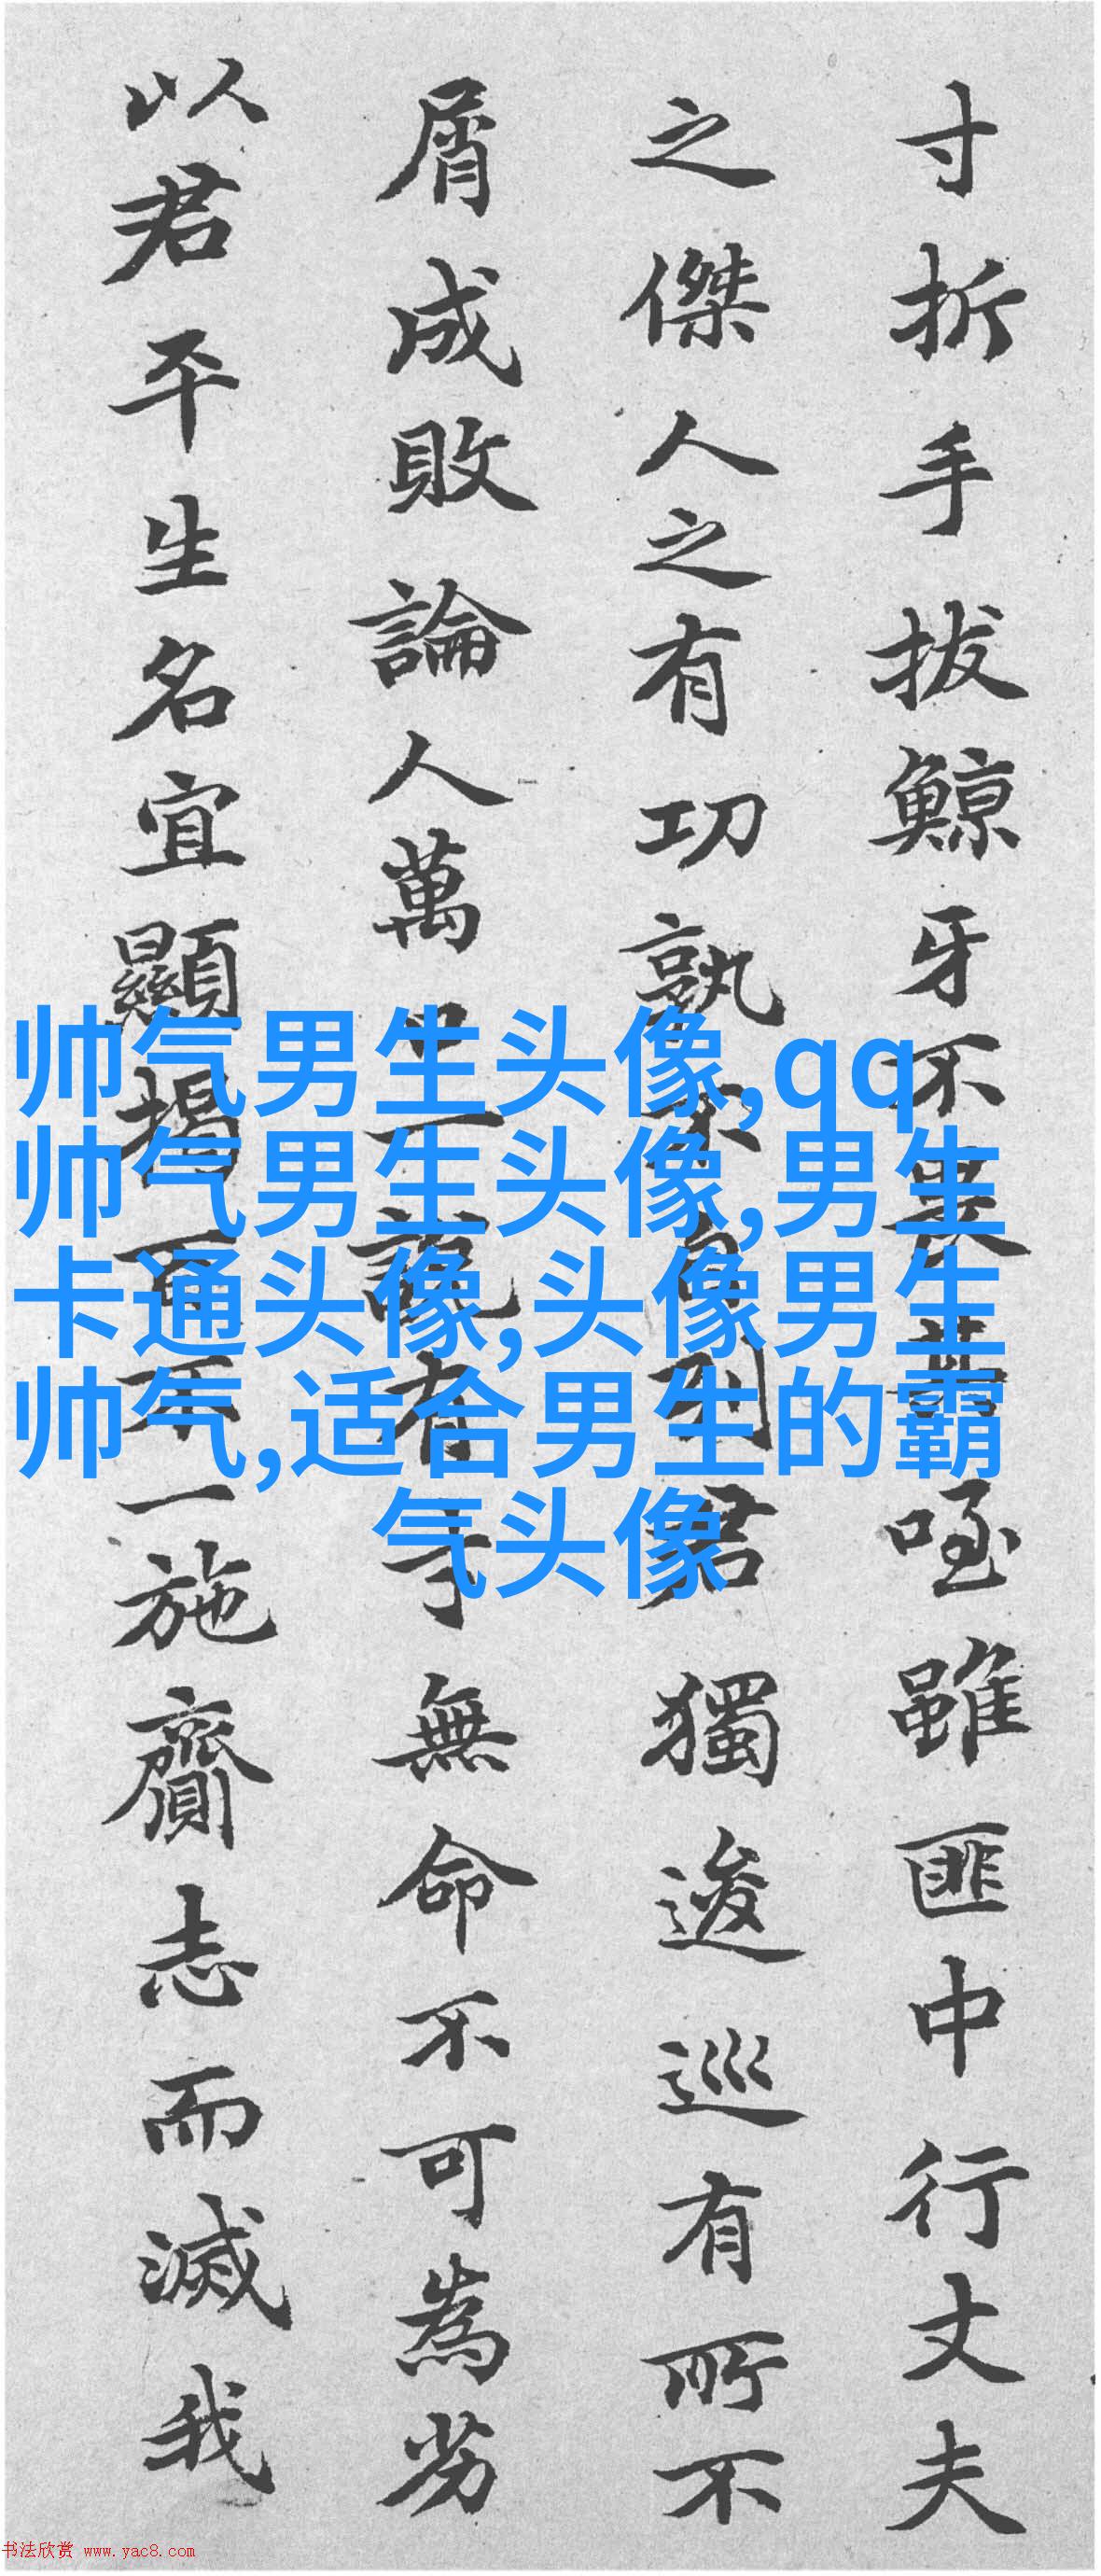 寸折手拔鯨牙不畏咥雖匪中行丈夫
之傑人之有功孰不自列君獨逡巡有所不
屑成敗論人萬口一說有才無命不可為
以君平生名宜顯揭百不一施齎志而滅我
帅气男生头像,qq
帅气男生头像,男生
卡通头像,头像男生
帅气,适合男生的霸
气头像
书法欣赏 www.yac8.com